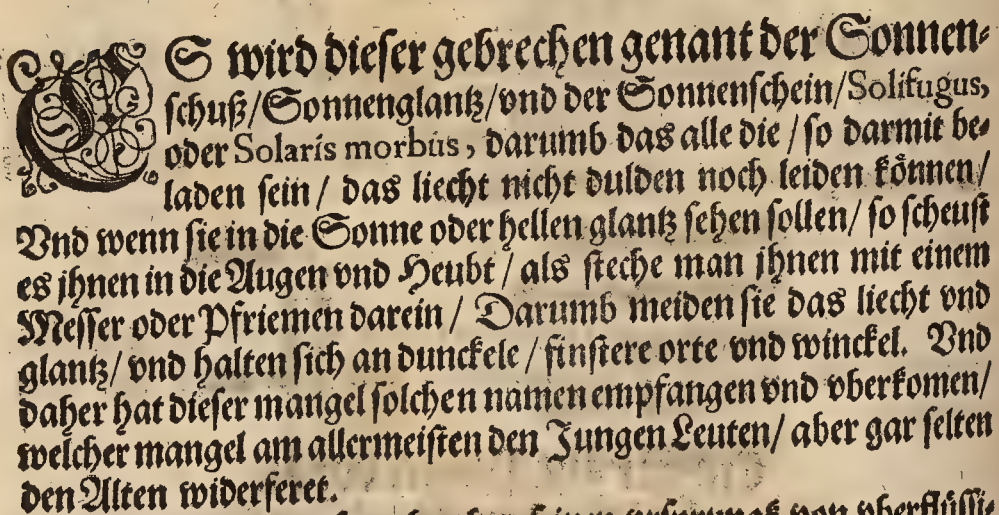 ES wird dieser gebrechen genant der Sonnen⸗
schuß/Sonnenglantz/vnd der Sonnenschein/Solifugus,
oder Solaris morbus, darumb das alle die / so darmit be⸗
laden sein / das liecht nicht dulden noch leiden können/
Vnd wenn sie in die Sonne oder hellen glantz sehen sollen/ so scheust
es jhnen in die Augen vnd Heubt / als steche man jhnen mit einem
Messer oder Pfriemen darein / Darumb meiden sie das liecht vnd
glantz/ vnd halten sich an dunckele / finstere orte vnd winckel. Vnd
daher hat dieser mangel solchen namen empfangen vnd vberkomen/
welcher mangel am allermeisten den Jungen Leuten/ aber gar selten
den Alten widerferet.
von vberflüssi⸗